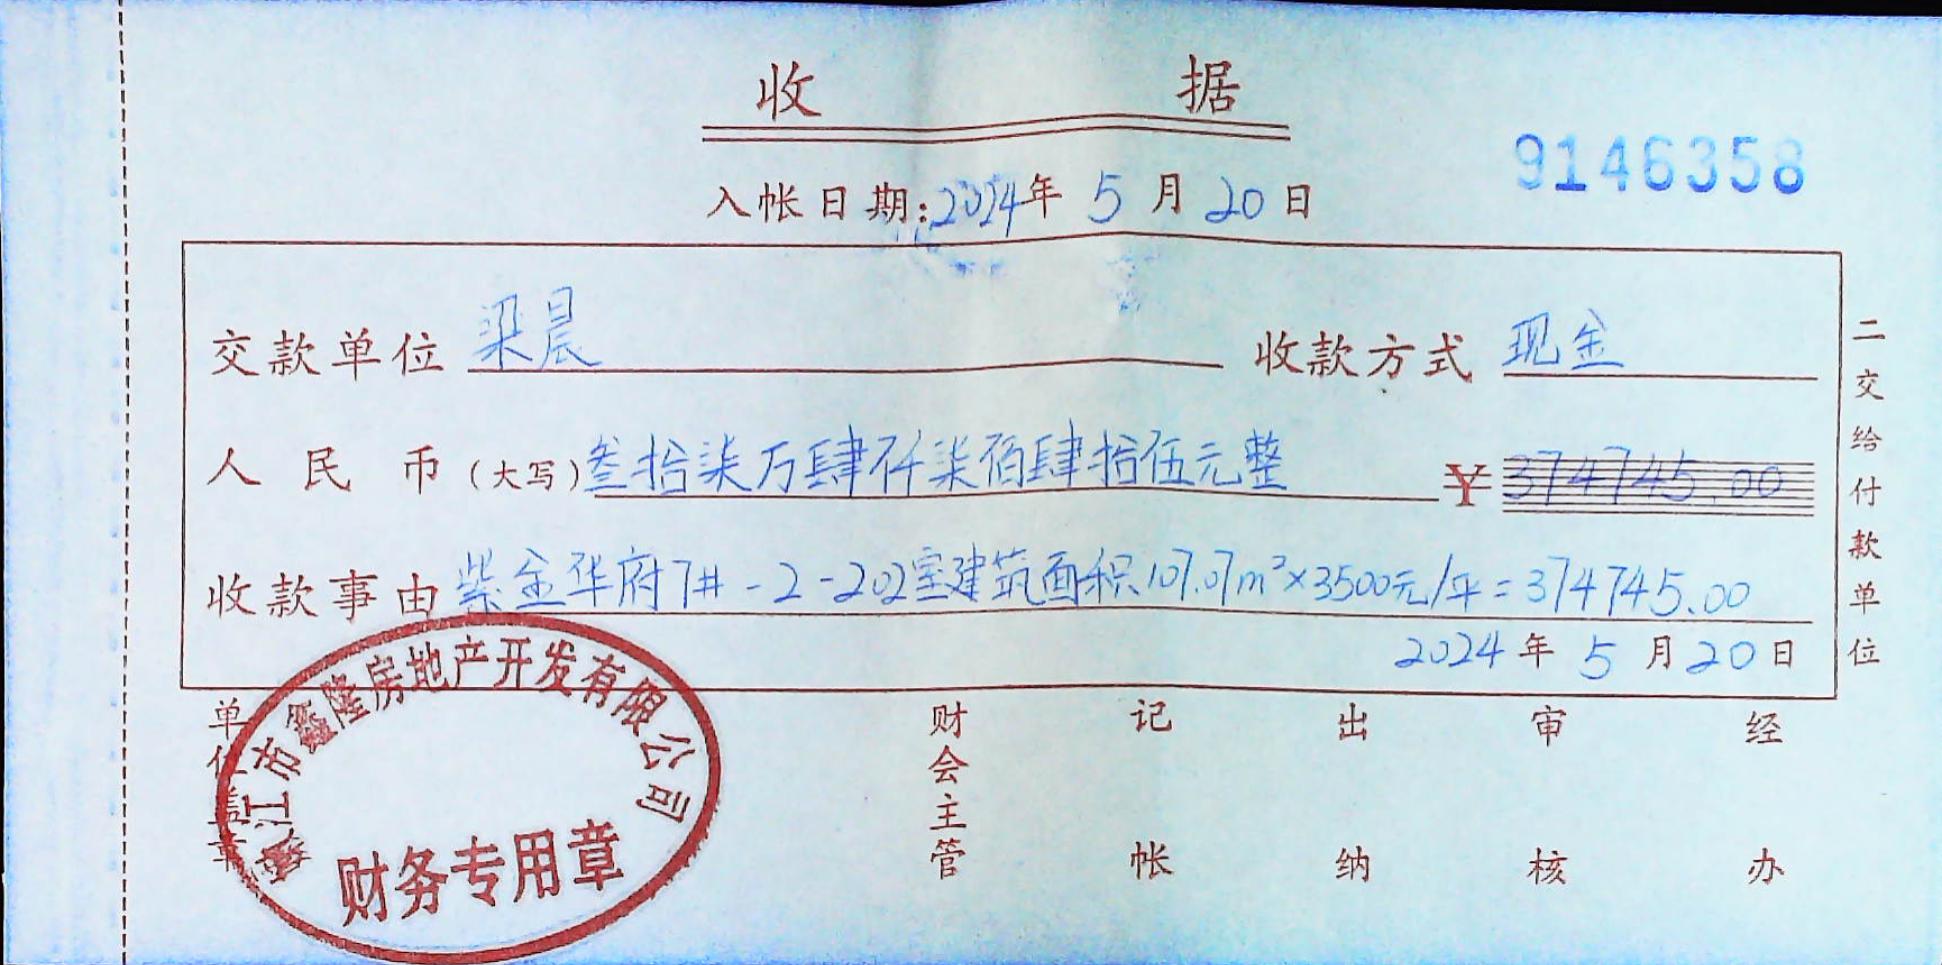 收 据
9146358
入帐日期:2024年 5 月 20 日
交款单位 梁晨 收款方式 现金
人 民 币(大写)叁拾柒万肆仟柒佰肆拾伍元整 ¥ 374745.00
收款事由 紫金华府7#-2-202室建筑面积107.07m²×3500元/平=374745.00
2024 年 5 月 20 日
二交给付款单位
单位盖章 财会主管 记帐 出纳 审核 经办
江市鑫隆房地产开发有限公司
财务专用章